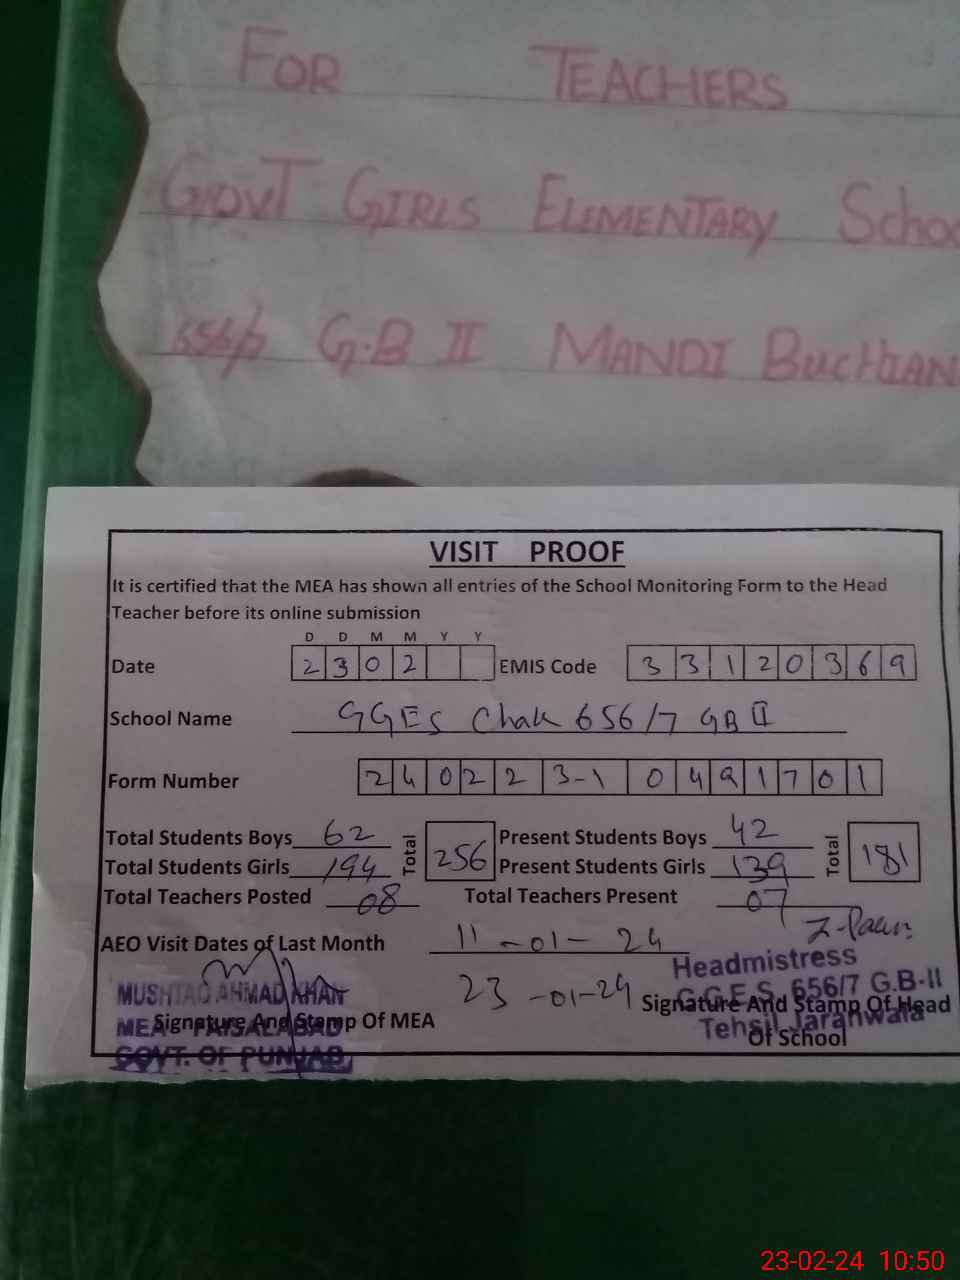 FOR TEACHERS
GOVT GIRLS ELEMENTARY Schoo
656/7 G.B II MANDI BUCHIAN
VISIT PROOF
It is certified that the MEA has shown all entries of the School Monitoring Form to the Head
Teacher before its online submission
D D M M Y Y
Date 2 3 0 2 EMIS Code 3 3 1 2 0 3 6 9
School Name GGES Chak 656/7 GB II
Form Number 2 4 0 2 2 3-1 0 4 9 1 7 0 1
Total Students Boys 62 Total 256 Present Students Boys 42 Total 181
Total Students Girls 194 Present Students Girls 139
Total Teachers Posted 08 Total Teachers Present 07
AEO Visit Dates of Last Month 11-01-24
23-01-24
Headmistress
MUSHTAQ AHMAD KHAN G.G.E.S. 656/7 G.B-II
Signature And Stamp Of Head
MEA FAISALABAD Signature And Stamp Of MEA Tehsil Jaranwala
Of School
GOVT. OF PUNJAB
23-02-24 10:50